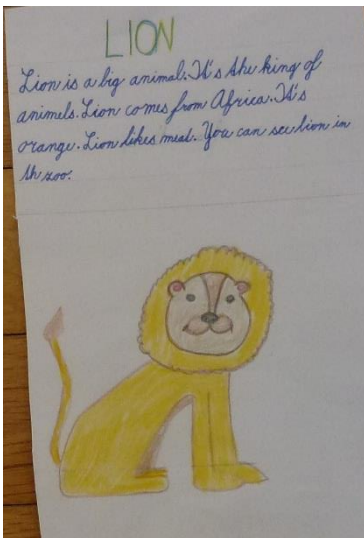 LION
Lion is a big animal. It's the king of
animels. Lion comes from Africa. It's
orange. Lion likes meat. You can see lion in
th zoo.